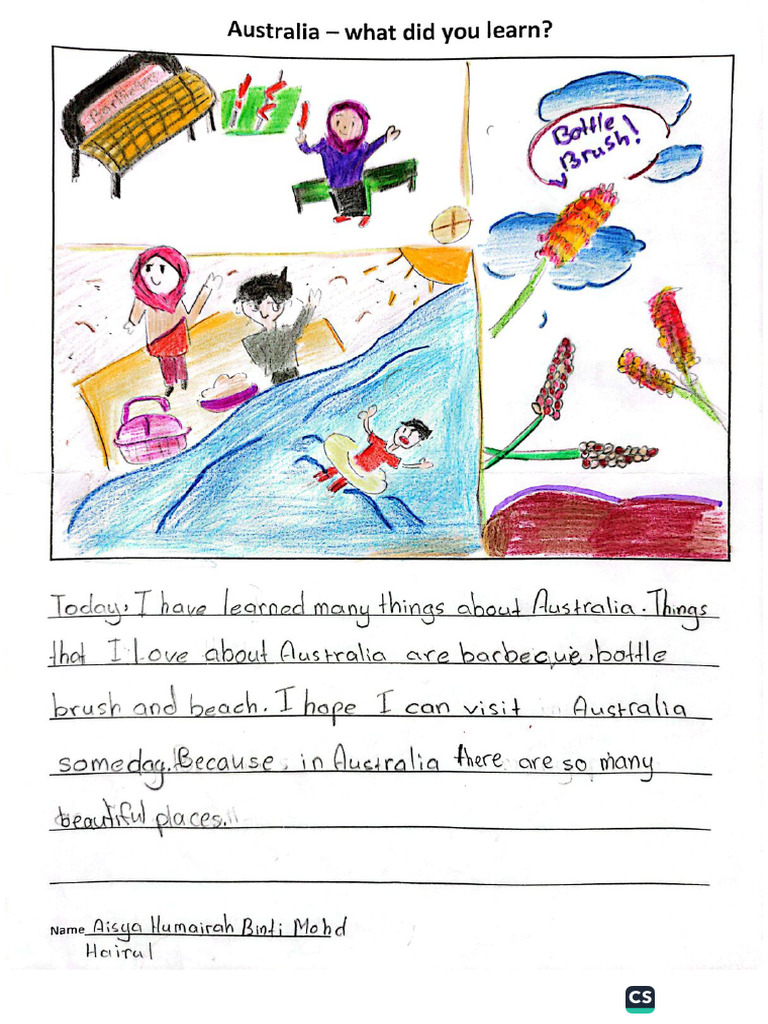 Australia – what did you learn?
Barbeque
Bottle
Brush!
Today, I have learned many things about Australia. Things
that I love about Australia are barbecque, bottle
brush and beach. I hope I can visit in Australia
someday. Because, in Australia there are so many
beautiful places.
Name Aisya Humairah Binti Mohd
Hairul
CS